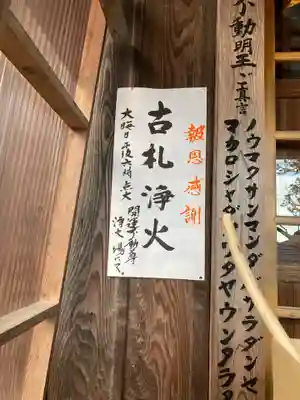 不動明王ご真言
ノウマクサンマンダバサラダンセ
マカロシャダ ワタヤウンタラタ
報恩感謝
古札浄火
大晦日午後六時点火
開運不動尊
浄火場にて。